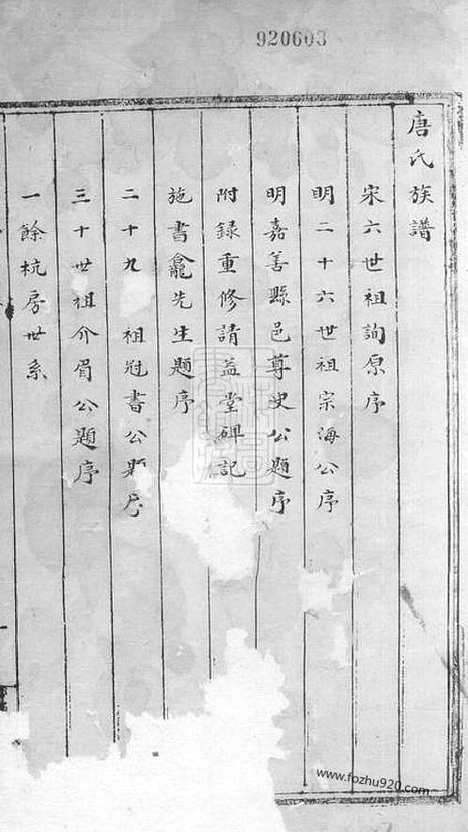 920603
唐氏族譜
宋六世祖詢原序
明二十六世祖宗海公序
明嘉善縣邑尊史公題序
附録重修請益堂碑記
施書龕先生題序
二十九 祖冠書公題序
三十世祖介眉公題序
一餘杭房世系
www.fozhu920.com